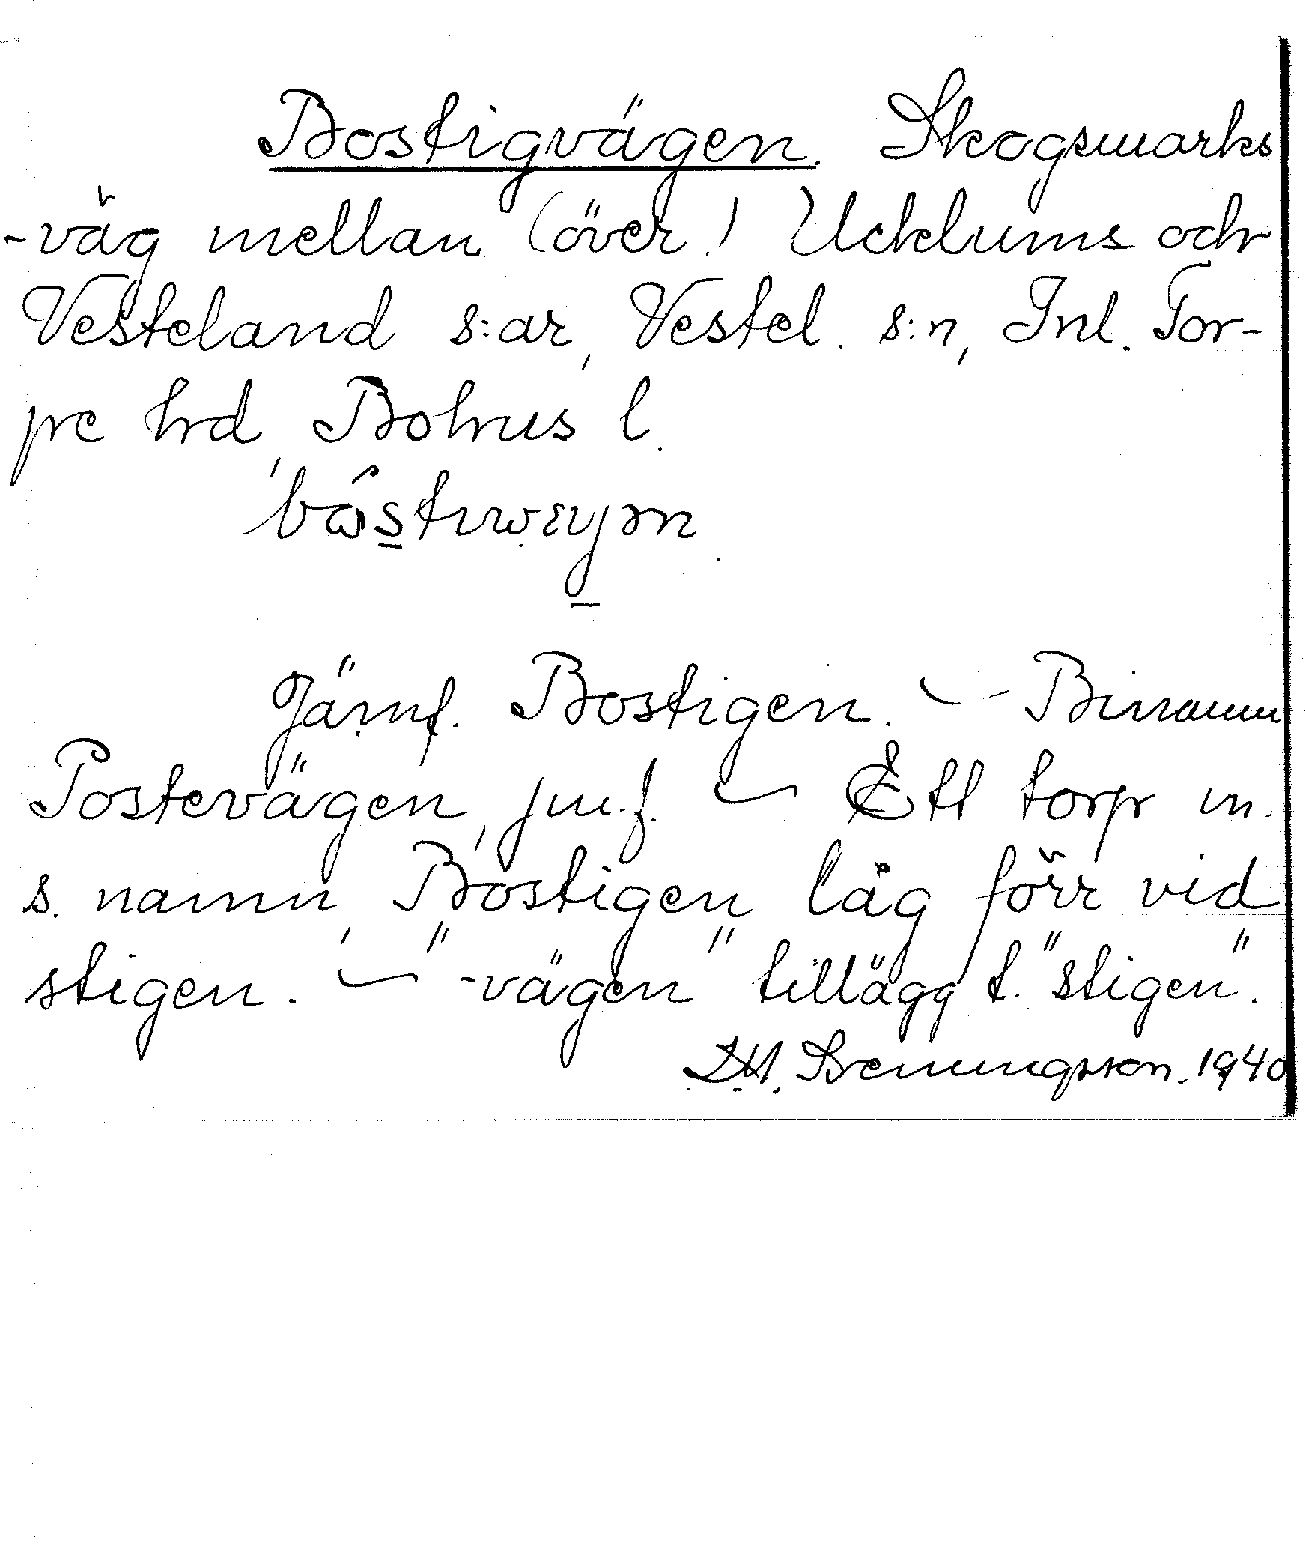 Bostigvägen. Skogsmarks
-väg mellan (över) Ucklums och
Vesteland s:ar, Vestel. s:n, Inl. Tor-
pe hrd, Bohus l.
Jämf. Bostigen. – Binamn
Postevägen, jmf. – Ett torp m.
s. namn, Bostigen, låg förr vid
stigen. – "-vägen" tillägg t. "stigen".
1940